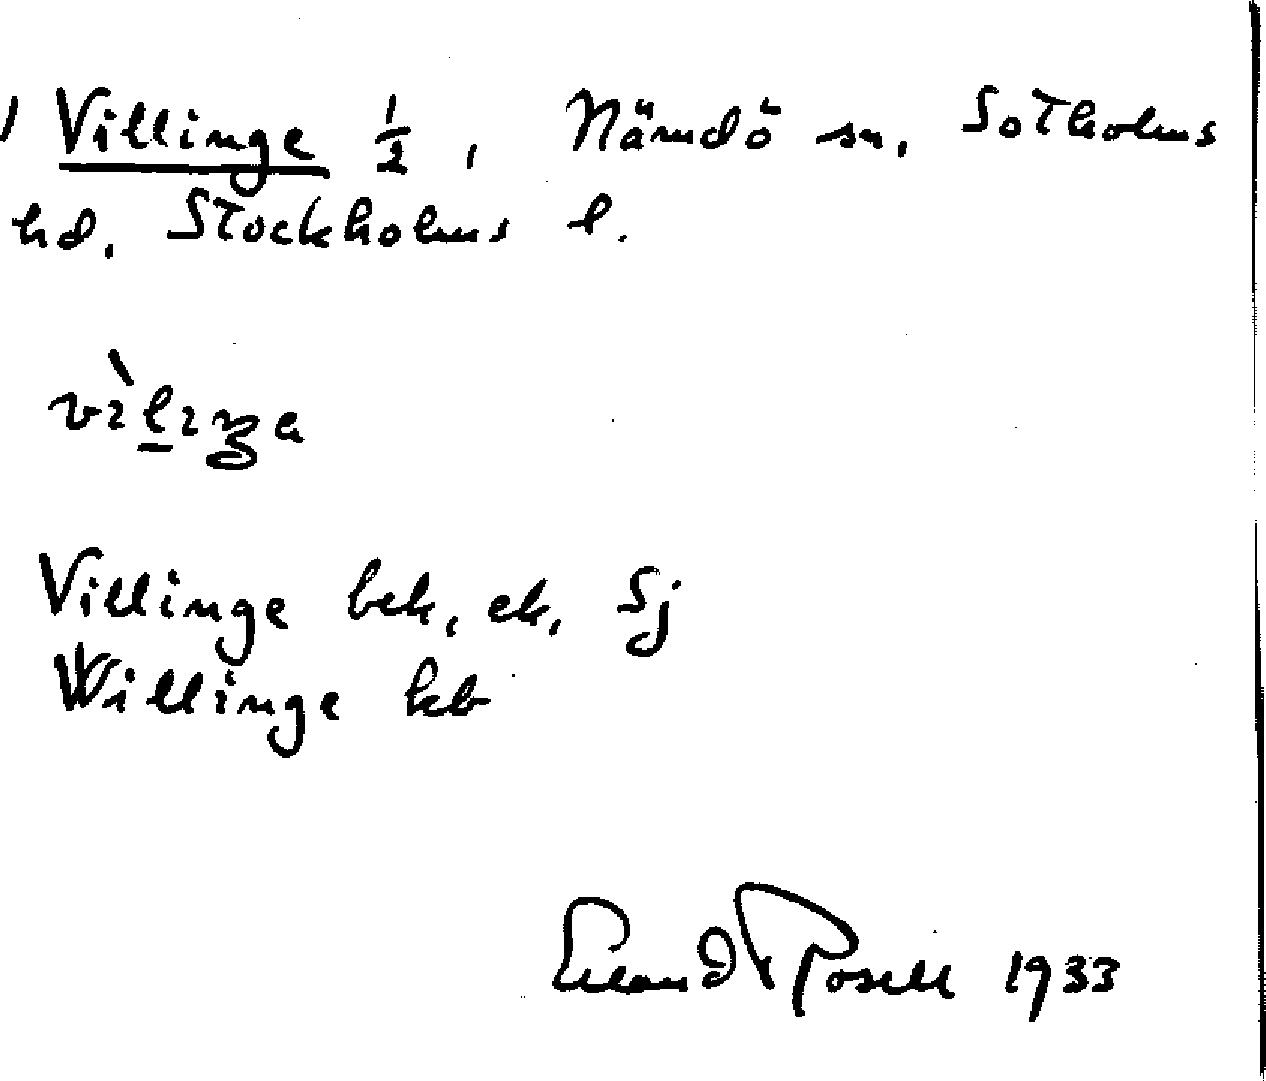 ) Villinge ½, Nämdö sn, Sotholms
hd, Stockholms l.
Villinge bek, ek, Sj
Willinge kb
Erland Rosell 1933